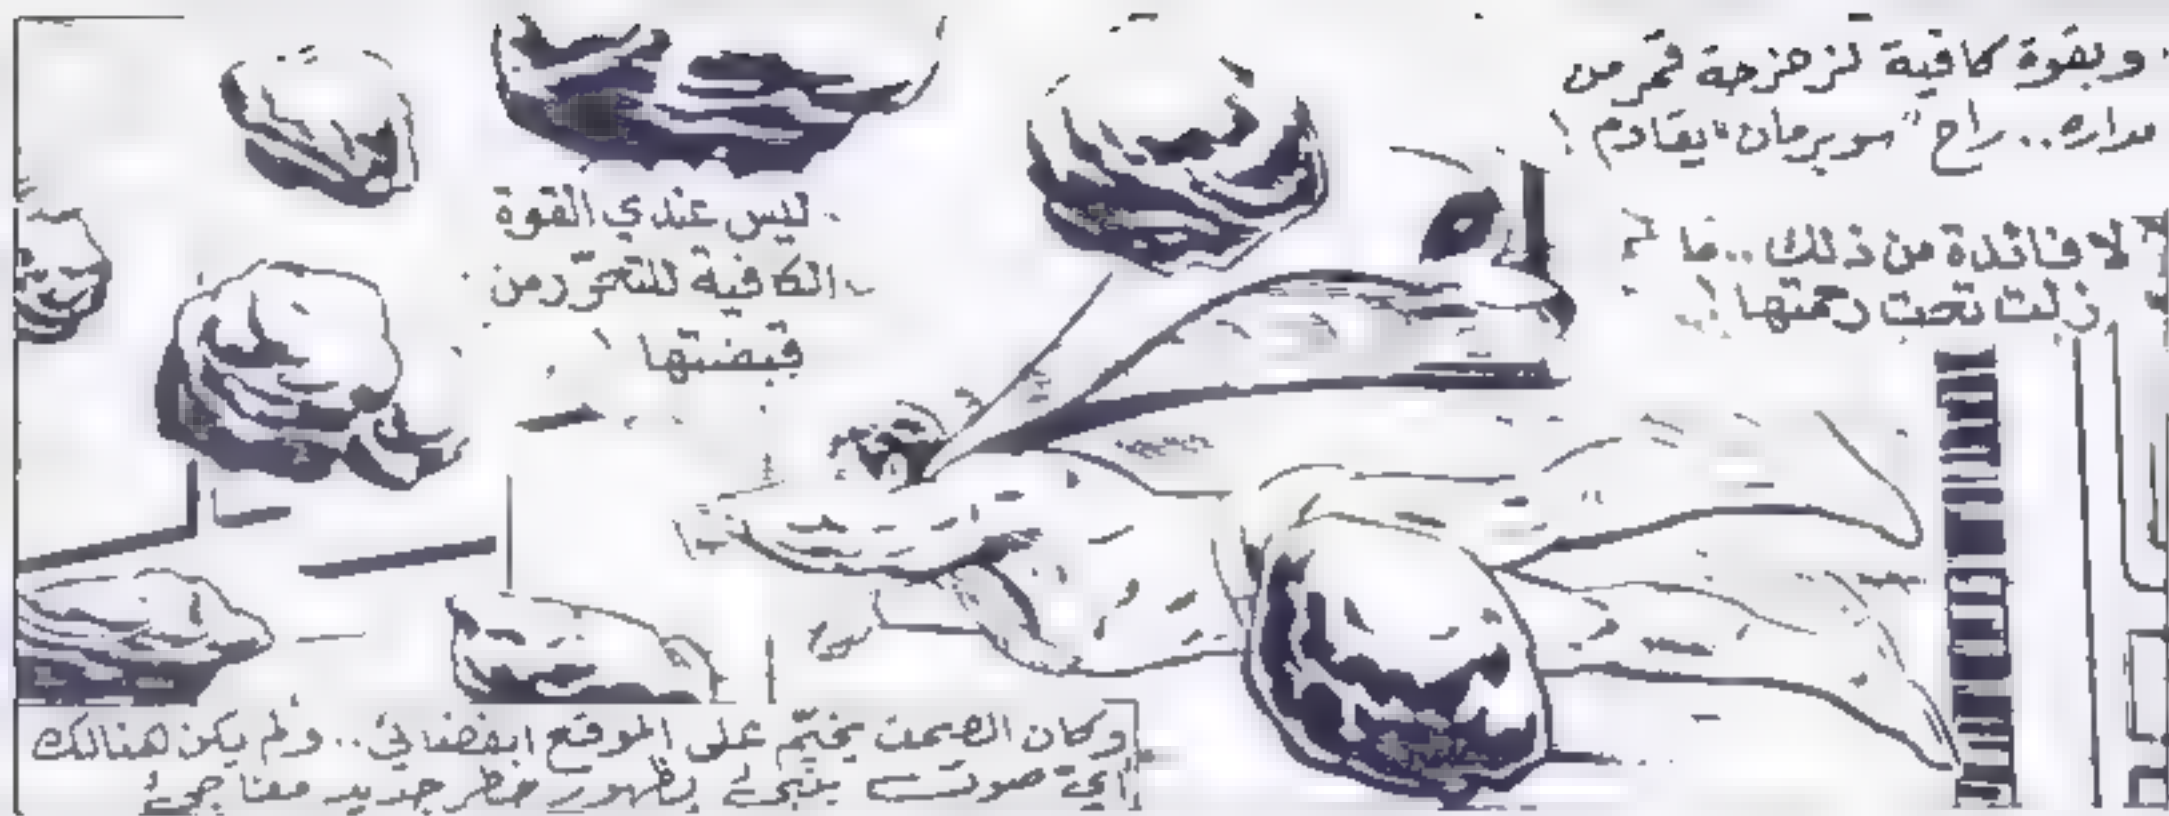 وبقوة كافية لزحزحة قمر من
مداره.. راح "سوبرمان" يقاوم !
لا فائدة من ذلك .. ما
زلت تحت رحمتها !..
ليس عندي القوة
الكافية للتحرّر من
قبضتها !
وكان الصمت يخيّم على الموقع الفضائي.. ولم يكن هنالك
أيّ صوت ينبئ بظهور خطر جديد مفاجئ